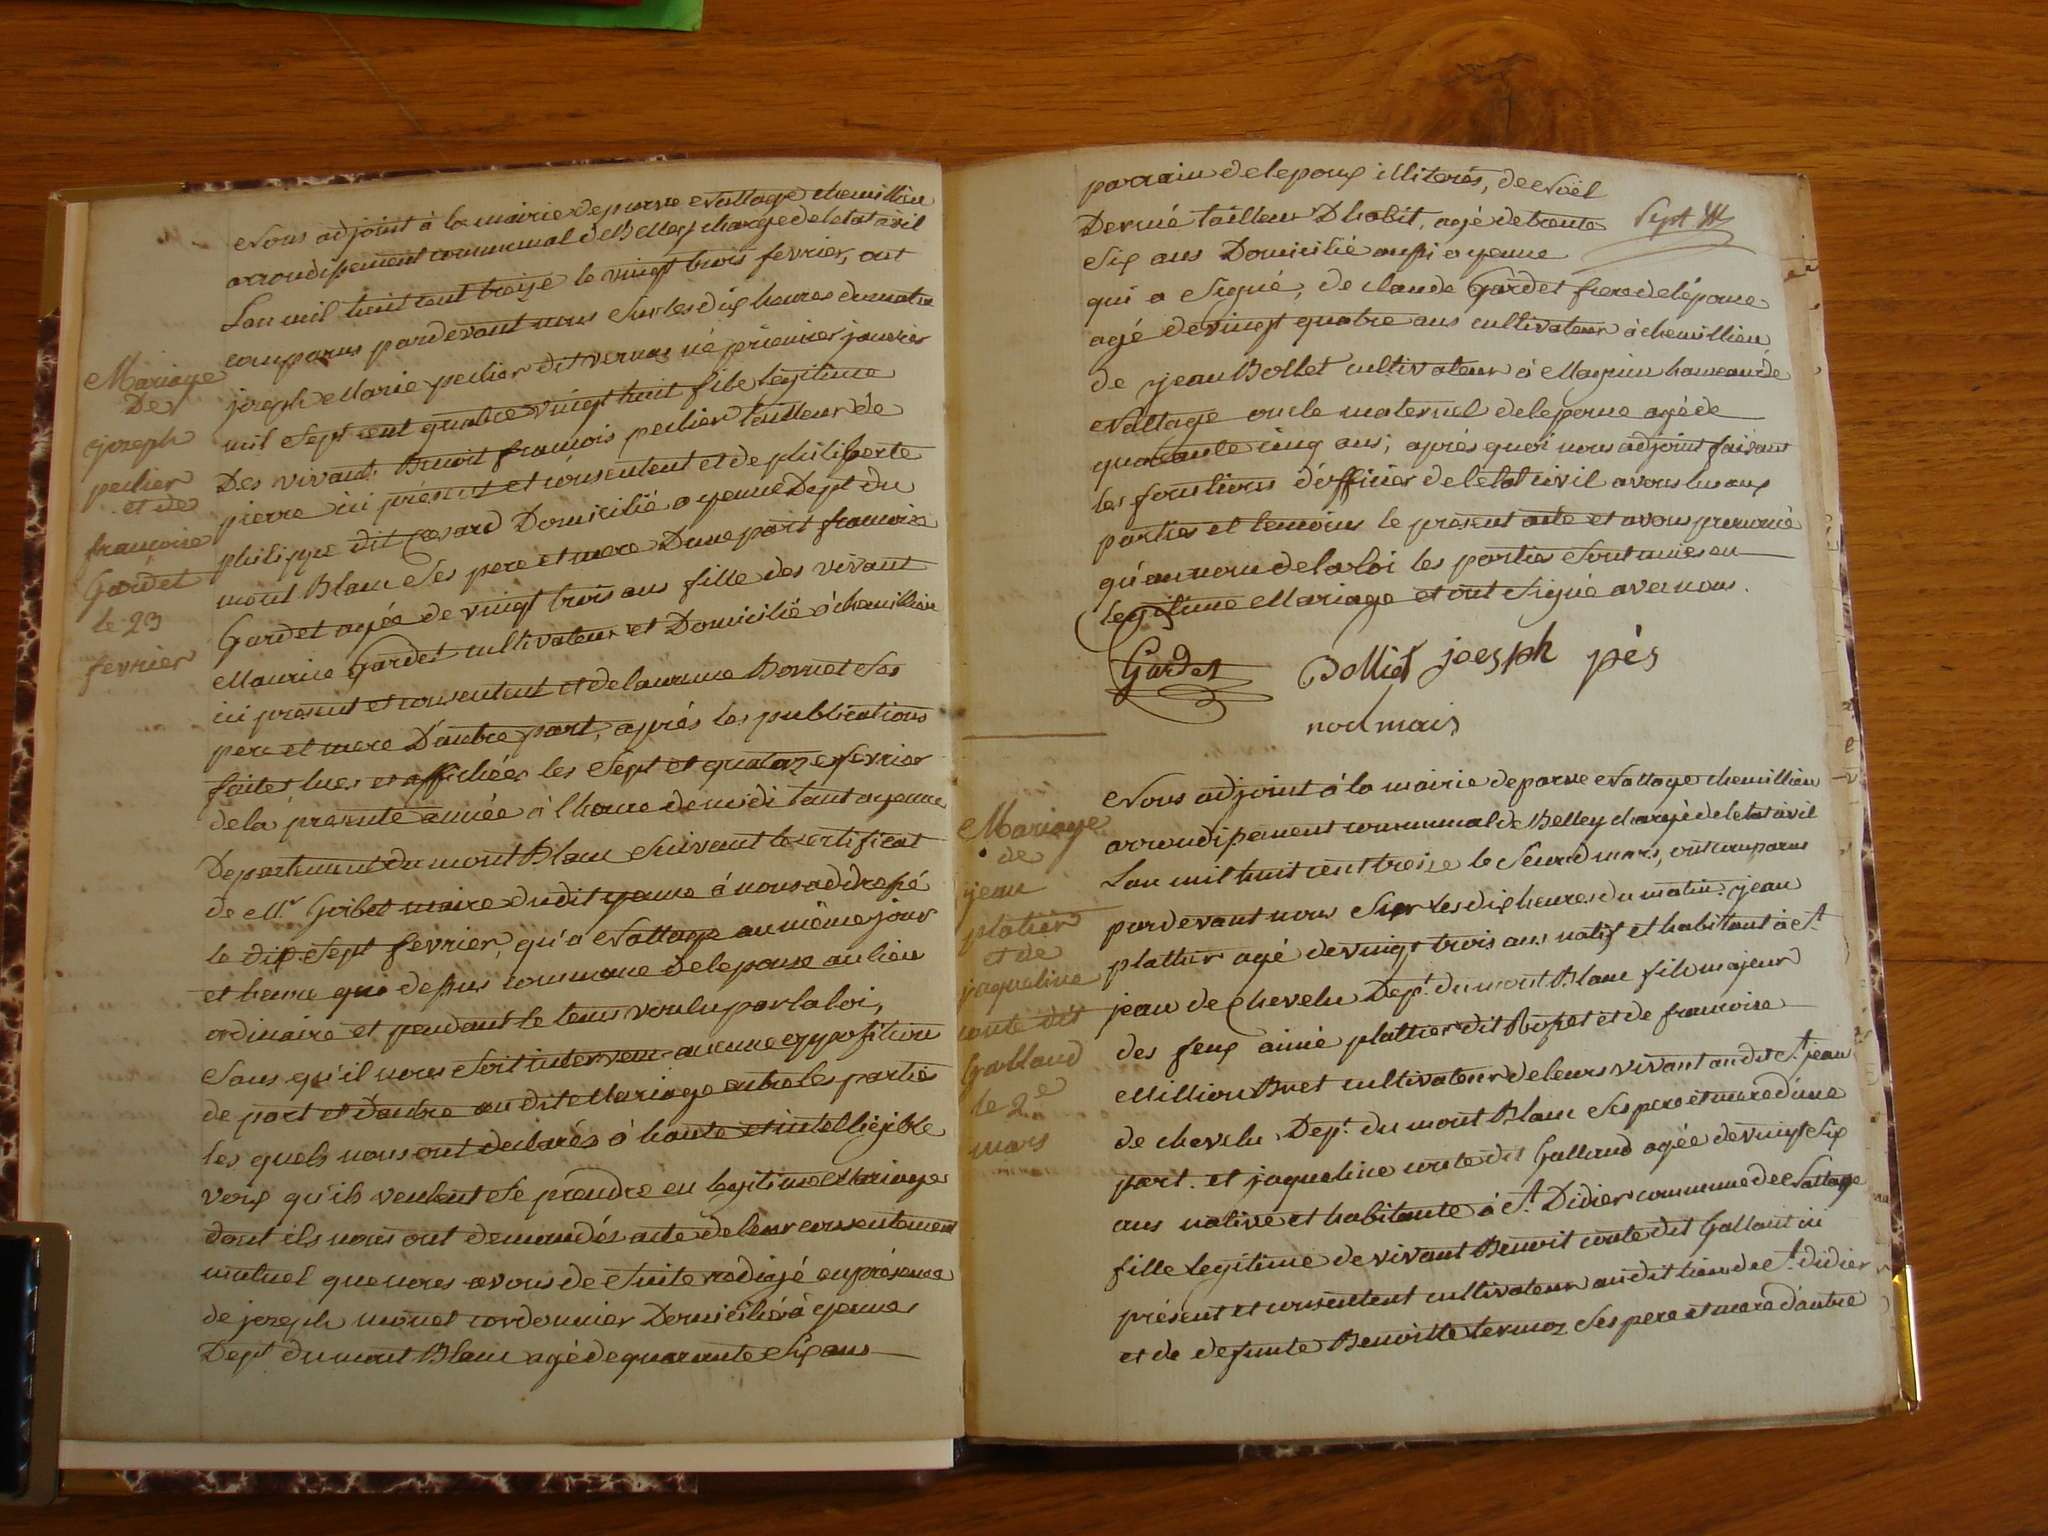 Nous adjoint à la mairie de parve Nattage chemillieu
arrondissement communal de Belley chargé de letat civil
Lan mil huit cent treize le vingt trois fevrier, ont
comparus pardevant nous Sur les dix heures du matin
Mariage
De
joseph
pecher
et de
francoise
Gardet
le 23
fevrier
joseph Marie pecher dit vernas né premier janvier
mil Sept cent quatre vingt huit fils legitime
Des vivant Benoit francois pecher tailleur de
pierre ici présent et consentent et de philiberte
philippe dit Cesard Domicilié a yenne Dept du
mont Blanc Ses pere et mere Dune part francoise
Gardet agée de vingt trois ans fille des vivant
Maurice Gardet cultivateur et Domicilié à chemillieu
ici present et consentent et de laurence Bornet Ses
pere et mere D'autre part, aprés les publications
faites lues et affichées les Sept et quatorze fevrier
de la présente année à l'heure de midi tant a yenne
Departement du mont Blanc Suivant le certificat
de Mr. Goibet maire dudit yenne à nous addressé
le dix Sept fevrier, qu'a Nattage au même jour
et heure que dessus commune de lepouse au lieu
ordinaire et pendant le tems voulu par la loi,
Sans qu'il nous Soit intervenu aucune opposition
de part et d'autre au dit Mariage entre les parties
les quels nous ont declarés à haute et intelliejible
voix qu'ils veulent Se préndre en legitime Mariage
dont ils nous ont demandés acte de leur consentement
mutuel que nous avons de Suite redigé en présence
de joseph monet cordonnier Domicilié à yenne
Dept du mont Blanc agé de quarante Six ans
parrain de lepoux illiterés, de Noël
Dernié tailleur D'habit, agé de trente
Sept
Six ans Domicilié aussi a yenne
qui a Signé, de claude Gardet frere de lépouse
agé de vingt quatre ans cultivateur à chemillieu
de jean Bollet cultivateur à Magnin hameau de
Nattage oncle maternel de lepouse agé de
quarante cinq ans; aprés quoi nous adjoint faisant
les fonctions d'officier de letat civil avons lu aux
parties et temoins le présent acte et avons prononcé
qu'au nom de la loi les parties Sont unies en
legitime Mariage et ont Signé avec nous.
Gardet Bolliet joesph pès
noel mais
Nous adjoint à la mairie de parve Nattage chemillieu
arrondissement communal de Belley chargé de letat civil
Lan mil huit cent treize le Second mars, ont comparus
Mariage
de
jean
platier
et de
jaqueline
conte dit
Galland
le 2e
mars
pardevant nous Sur les dix heures du matin jean
plattier agé de vingt trois ans natif et habitant à St.
jean de Chevelu Dept. du mont Blanc fils majeur
des feux aimé plattier dit Rosset et de francoise
Million Buet cultivateur de leurs vivant au dit St. jean
de chevelu Dept. du mont Blanc Ses pere et mere d'une
part. et jaqueline conte dit Galland agée de vingt Six
ans native et habitante à St. Didier commune de Nattage
fille legitime de vivant Benoit conte dit Gallant ici
présent et consentent cultivateur audit lieu de St. didier
et de defunte Benoitte termoz Ses pere et mere d'autre